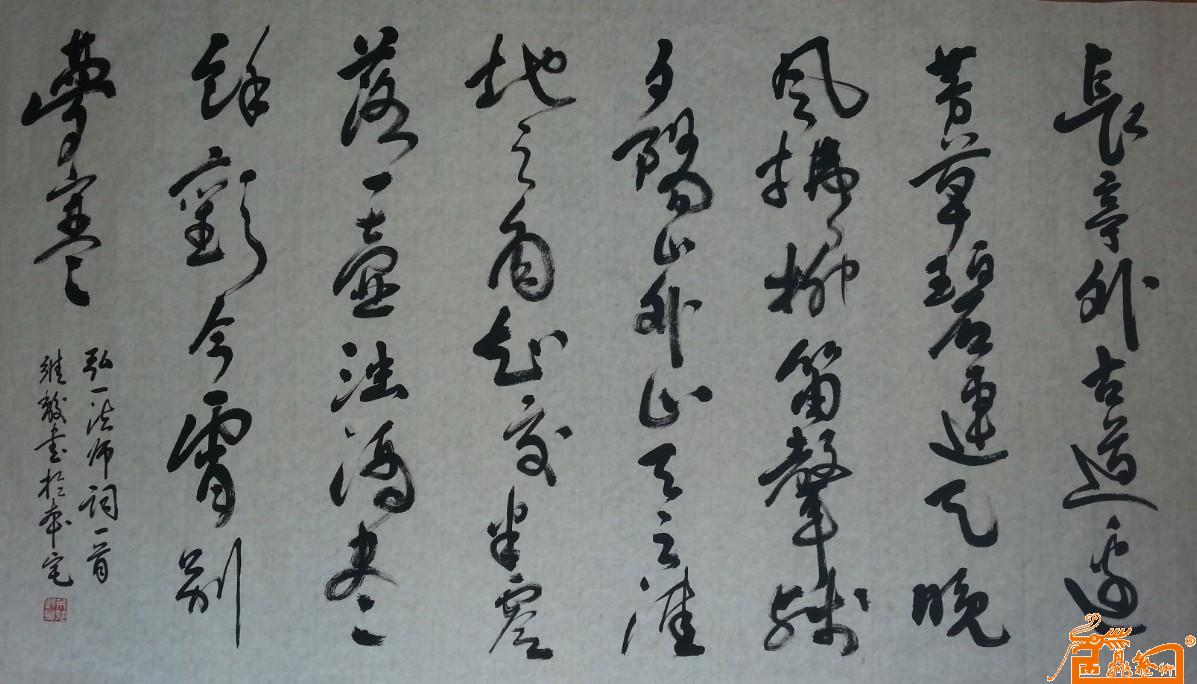 長亭外古道邊
芳草碧連天晚
風拂柳笛聲殘
夕陽山外山天之涯
地之角知交半零
落一壺濁酒盡
餘歡今宵別
夢寒
弘一法師詞一首
維毅書於本宅